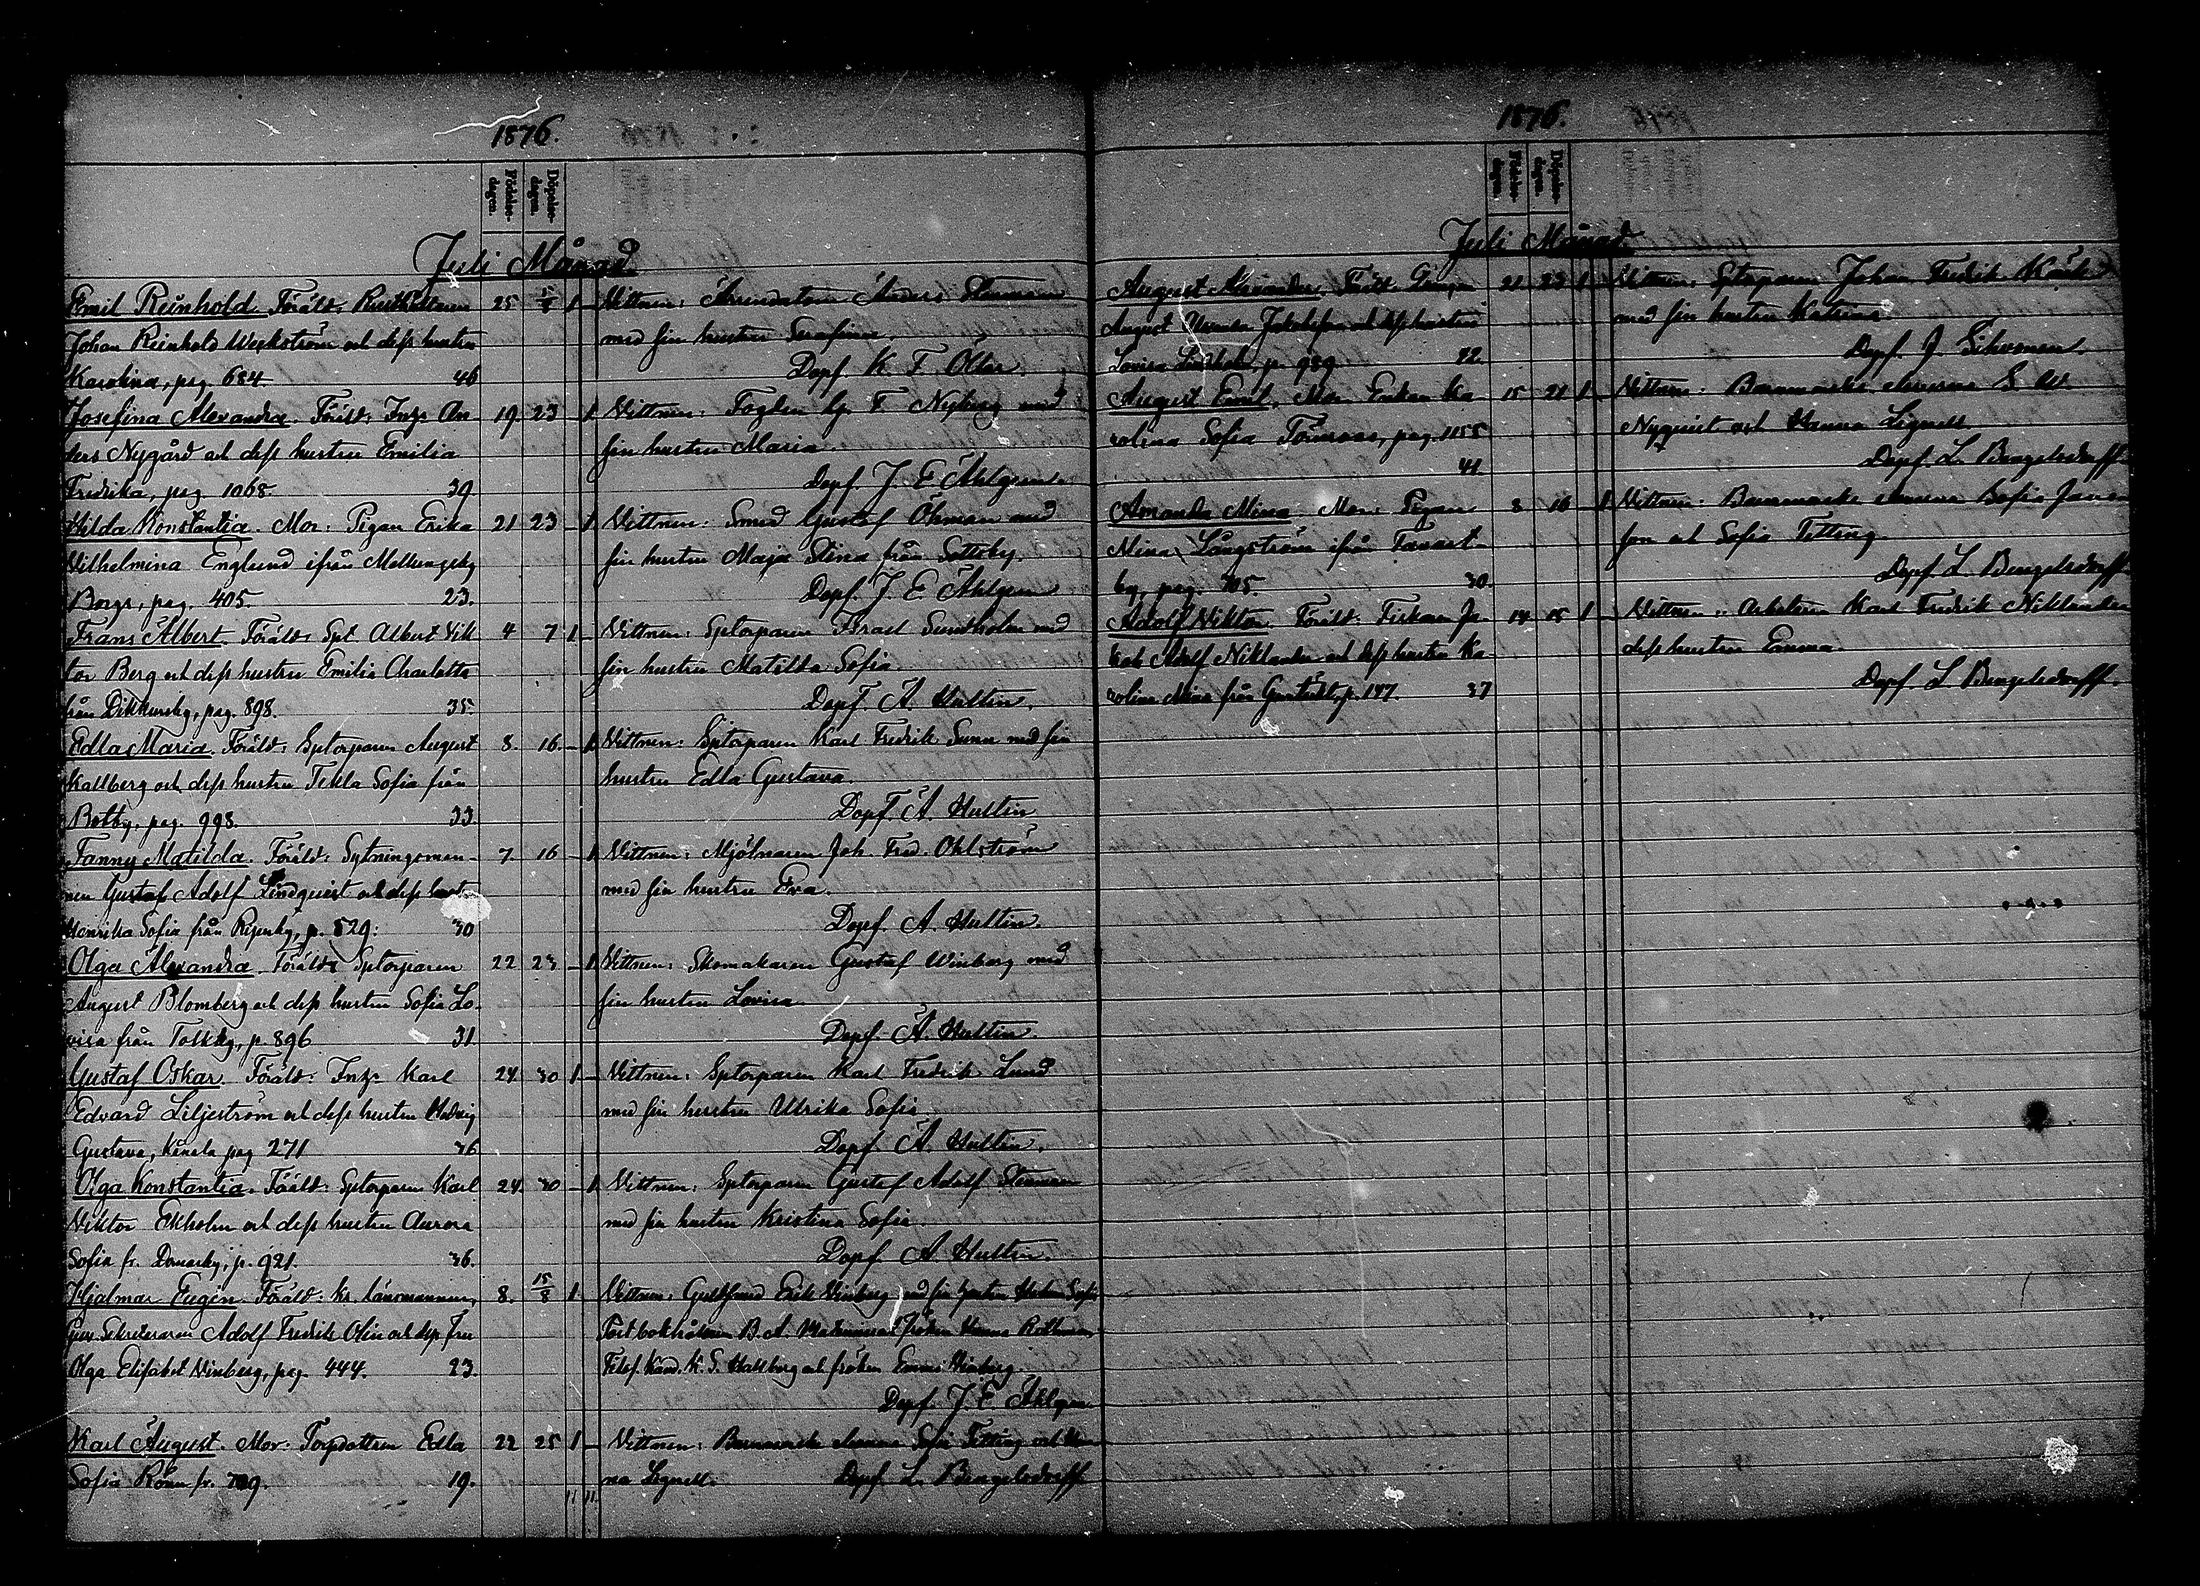 1876.
Födelse-dagen. Döpelse-dagen.
Juli Månad.
Emil Reinhold. Föräld: Rusthållaren 25 5/8 1 –
Johan Reinhold Weckström och dess hustru
Karolina, pag. 684 46
Vittnen: Arrendatorn Anders
med sin hustru Serafina.
Döpf. K. F.
Josefina Alexandra. Föräld: Inhs An- 19. 23 – 1
ders Nygård och dess hustru Emilia
Fredrika, pag. 1068. 39.
Vittnen: Fogden G. F. Nyberg med
sin hustru Maria.
Döpf. J. E. Åhlgren.
Hilda Konstantia. Mor: Pigan Erika 21 23 – 1
Vilhelmina Englund ifrån
Borgs, pag. 405. 23.
Vittnen: Smed Gustaf Öhman med
sin hustru Maja Stina från Sottsby.
Döpf. J. E. Åhlgren
Frans Albert. Föräld: Spt Albert Vik- 4 7 1 –
tor Berg och dess hustru Emilia Charlotta
från Dickursby, pag. 898. 35.
Vittnen: Sptorparen Israel Sundholm med
sin hustru Matilda Sofia.
Döpf. A. Hultin.
Edla Maria. Föräld: Sptorparen August 8. 16 – 1
Kallberg och dess hustru Tekla Sofia från
Botby, pag. 998. 33
Vittnen: Sptorparen Karl Fredrik Sunn med sin
hustru Edla Gustava.
Döpf. A. Hultin
Fanny Matilda. Föräld: Sytningsman- 7. 16 – 1
nen Gustaf Adolf Lindqvist och dess hust
Henrika Sofia från Ripuby, p. 529: 30
Vittnen: Mjölnaren Joh. Fred. Ohlström
med sin hustru Eva.
Döpf. A. Hultin.
Olga Alexandra. Föräld: Sptorparen 22 23 – 1
August Blomberg och dess hustru Sofia Lo-
visa från Tolkby, p. 896 31
Vittnen: Skomakaren Gustaf Winberg med
sin hustru Lovisa.
Döpf. A. Hultin.
Gustaf Oskar. Föräld: Inhs Karl 24. 30 1 –
Edvard Liljeström och dess hustru Hedvig
Gustava, Kånala pag 271 36
Vittnen: Sptorparen Karl Fredrik Lund
med sin hustru Ulrika Sofia.
Döpf. A. Hultin.
Olga Konstantia. Föräld: Sptorparen Karl 24. 30 – 1
Viktor Ekholm och dess hustru Aurora
Sofia fr. Domarby, p. 921. 36.
Vittnen: Sptorparen Gustaf Adolf Stenman
med sin hustru Kristina Sofia.
Döpf. A. Hultin.
Hjalmar Eugén. Föräld: Kr. länsmannen, 8. 15/8 1
Guv. Sekreteraren Adolf Fredrik Olin och dess fru
Olga Elisabet Vinberg, pag. 444. 23.
Vittnen: Guldsmed Erik Vinberg med sin hustru Sofi
Postbokhållaren B. A. fröken Hanna
Filos. Kand. K. S. Hallberg och fröken Emma Vinberg.
Döpf. J. E. Åhlgren
Karl August. Mor: Torpdottren Edla 22 25 1 –
Sofia Rönn fr. 19.
Vittnen: Barnmorske eleverna Sofia Tetting och Han-
na Lignell. Döpf. L. Bengelsdorff
11 11
1876.
Födelse-dagen. Döpelse-dagen.
Juli Månad.
August Alexander. Föräld: 21 23 1 –
August Jakobsson och dess hustru
Lovisa p. 989. 42.
Vittnen: Sptorparen Johan Fredrik
med sin hustru Katrina
Döpf. J. Sihvonen.
August Emil. Mor: Enkan Ka- 15 21 1 –
rolina Sofia Törnroos, pag. 1155
41.
Vittnen: Barnmorske eleverna S. W.
Nyqvist och Hanna Lignell
Döpf. L. Bengelsdorff
Amanda Mina. Mor: Pigan 8 10 – 1
Mina Långström ifrån Tavast-
by, pag. 705. 30.
Vittnen: Barnmorske eleverna Sofia Jans-
son och Sofia Tetting.
Döpf. L. Bengelsdorff
Adolf Viktor. Föräld: Fiskaren Ja- 14 15 1 –
kob Adolf Niklander och dess hustru Ka-
rolina Mina från p. 147. 37
Vittnen: Arbetaren Karl Fredrik Niklander
dess hustru Emma.
Döpf. L. Bengelsdorff.